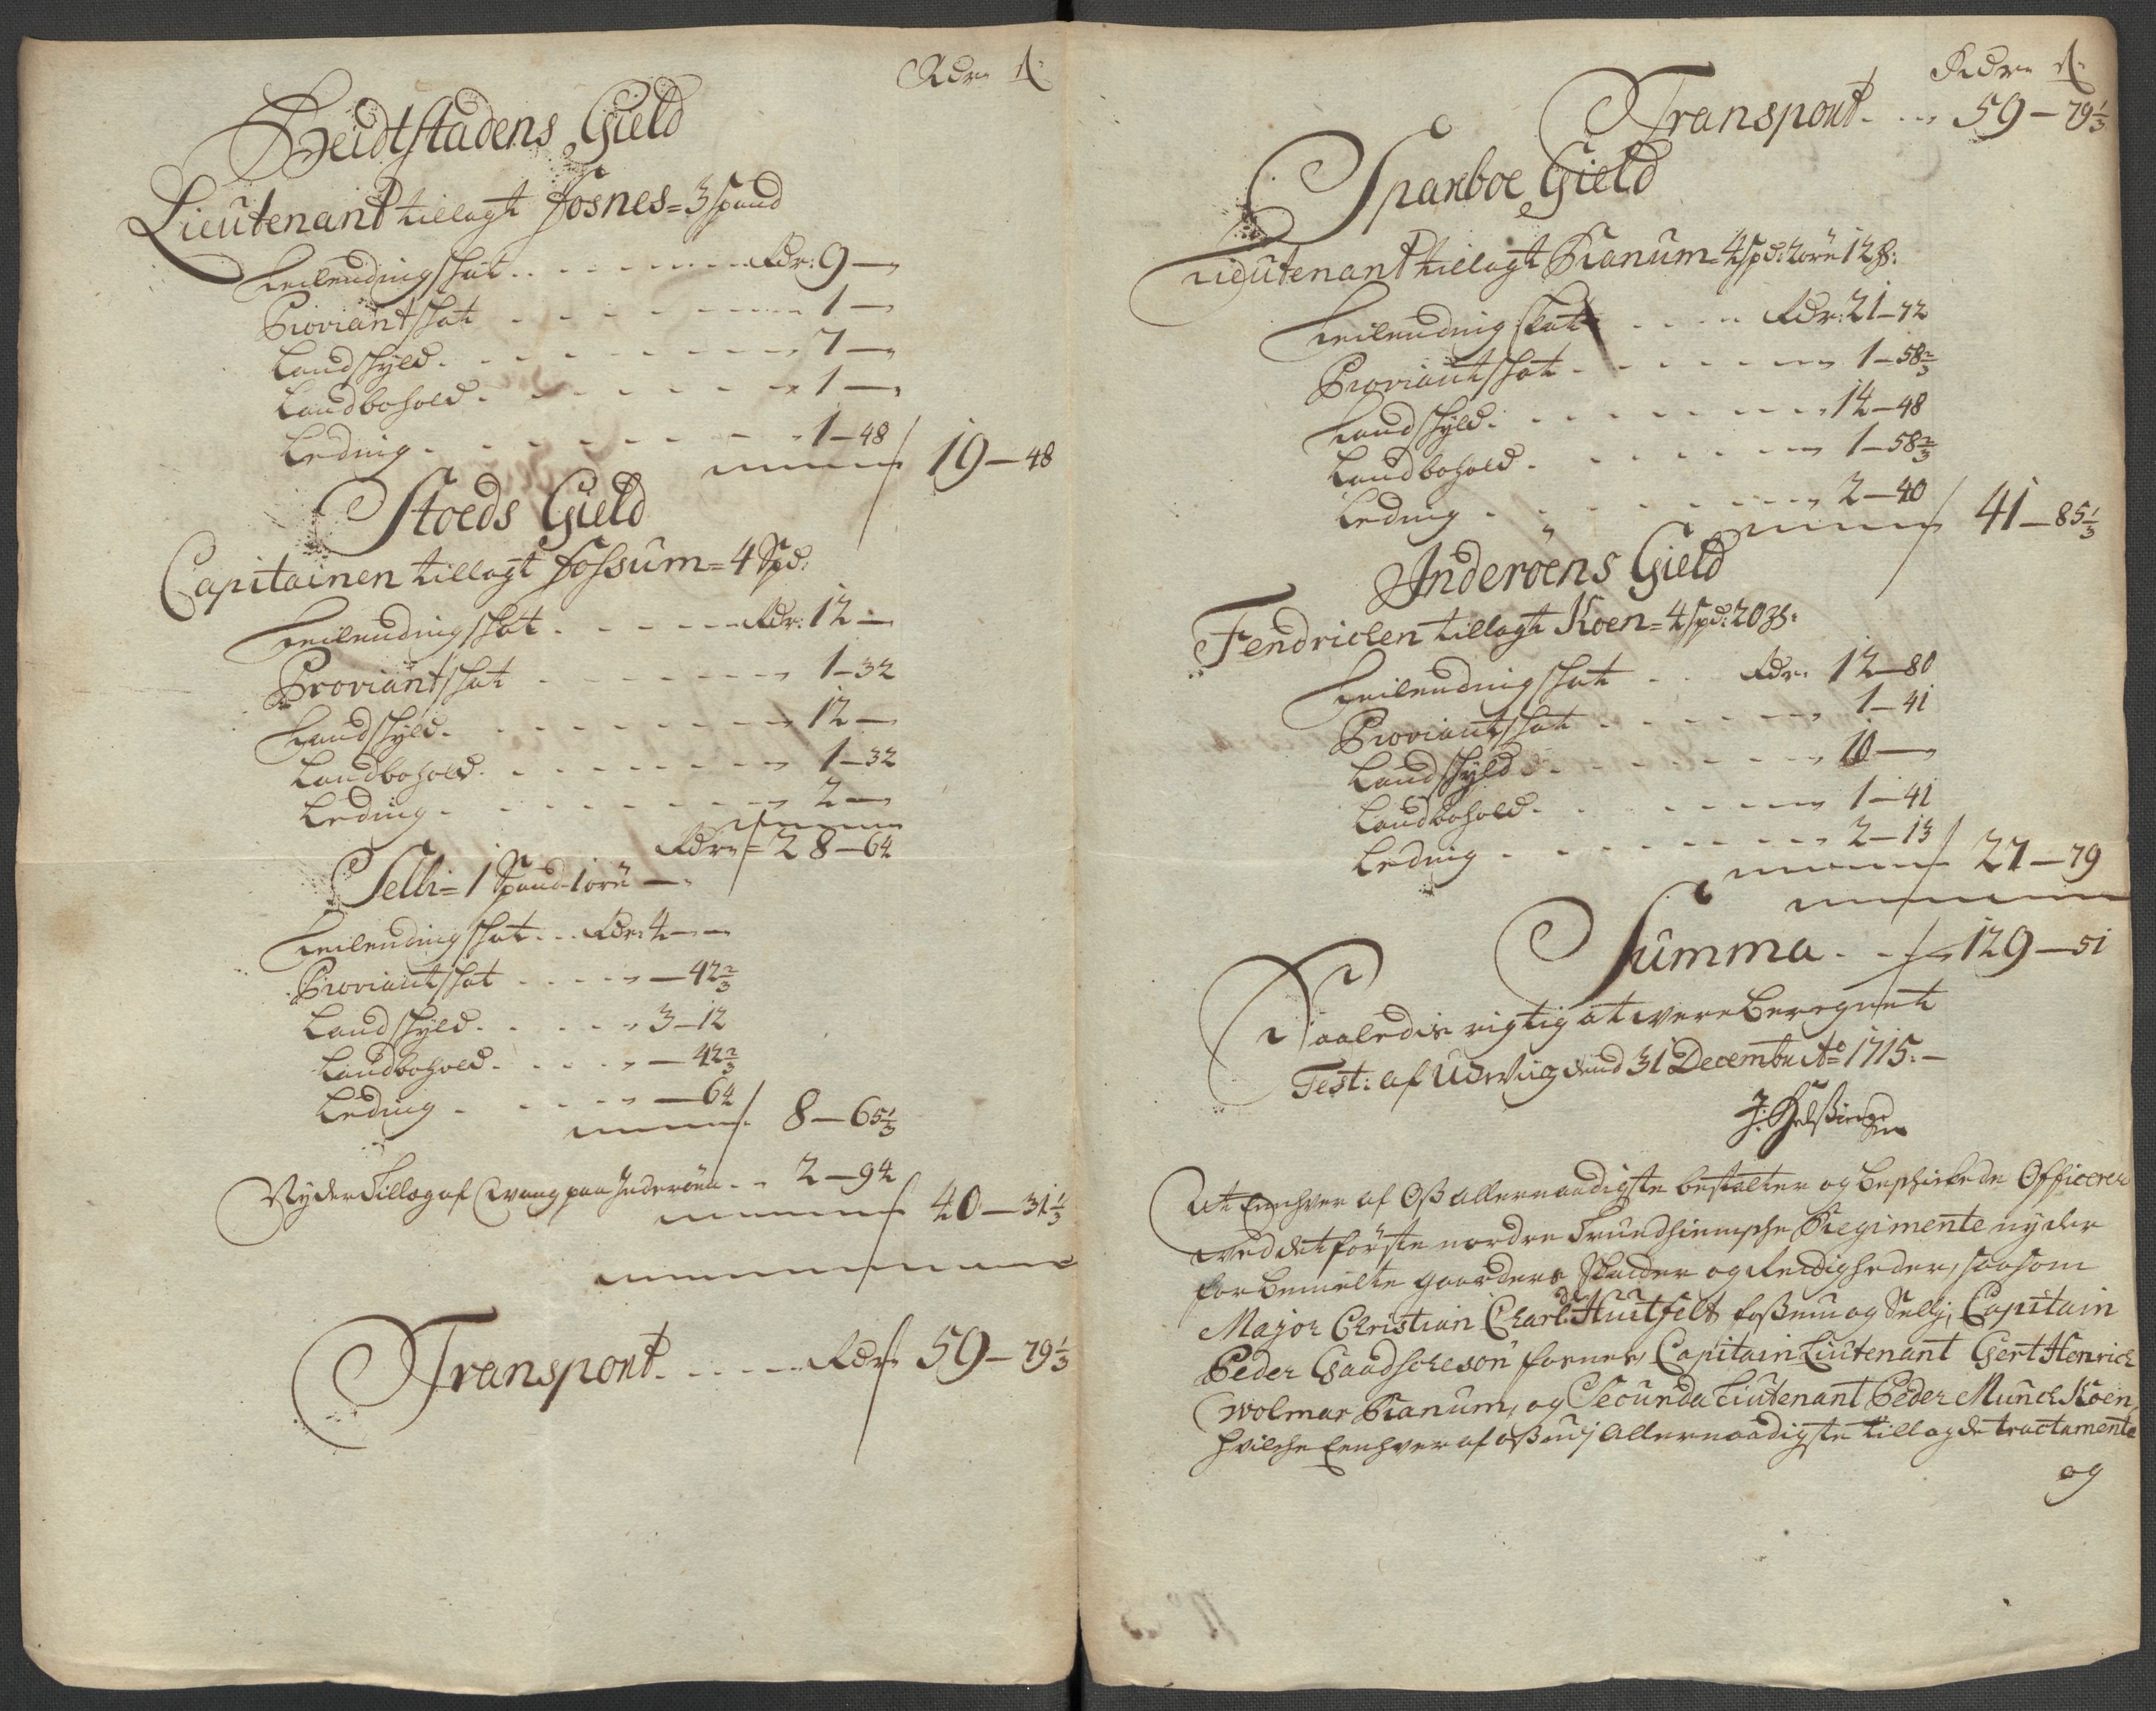 Rdr ß
Beidtstadens Gield
Lieutenant tillagt Fosnes = 3 spand
Leilendingschat . . . . . . Rdr: 9 —
Proviantschat . . . . . . 1 —
Landschyld . . . . . . 7 —
Landbohold . . . . . . 1 —
Leding . . . . . . 1 — 48
19 — 48
Stoeds Gield
Capitainen tillagt Fossum = 4 Spd:
Leilendingschat . . . . . Rdr: 12 —
Proviantschat . . . . . . 1 — 32
Landschyld . . . . . . 12 —
Landbohold . . . . . . 1 — 32
Leding . . . . . . 2 —
Rdr = 28 — 64
Selli = 1 Spand 1 öre —
Leilendingschat . . . Rdr: 4 —
Proviantschat . . . . — 42 2/3
Landschyld . . . . . 3 — 12
Landbohold . . . . . — 42 2/3
Leding . . . . . — 64
8 — 65 1/3
Nyder Tillæg af Wang paa Inderöen . . 2 — 94
40 — 31 1/3
Transport . . . . . Rdr 59 — 79 1/3
Rdr ß
Transport . . . 59 — 79 1/3
Sparboe Gield
Lieutenant tillagt Kranum = 4 spd: 2 öre 12 ß:
Leilendingskat . . . . Rdr: 21 — 72
Proviantschat . . . . . . 1 — 58 2/3
Landschyld . . . . . . 14 — 48
Landbohold . . . . . . 1 — 58 2/3
Leding . . . . . . 2 — 40
41 — 85 1/3
Inderöens Gield
Fendrichen tillagt Koen = 4 spd: 20 ß:
Leilendingschat . . Rdr: 12 — 80
Proviantschat . . . . . . 1 — 41
Landschyld . . . . . . 10 —
Landbohold . . . . . . 1 — 41
Leding . . . . . . 2 — 13
27 — 79
Summa . . 129 — 51
Saaledis rigtig at were beregnet
Test: af Udwiig dend 31 Decembr Ao 1715. —
At Eenhver af Oß allernaadigste bestalter og beschikede Officerer
wed det förste nordre Trundhiemsche Regimente nyder
forbemelte gaarders Skatter og Reedigheder, saasom
Major Christian Charl: Huitfelt Foßum og Selli, Capitain
Peder Fosnes, Capitain Liutenant Gert Henrich
Wolmar Kranum, og Secunda Liutenant Peder Munch Koen,
hvilche Eenhver af oß allernaadigste tillagde tractamente
og